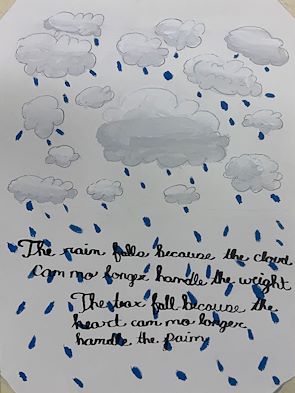 The rain falls because the cloud
can no longer handle the weight
The tear fall because the
heart can no longer
handle the pain